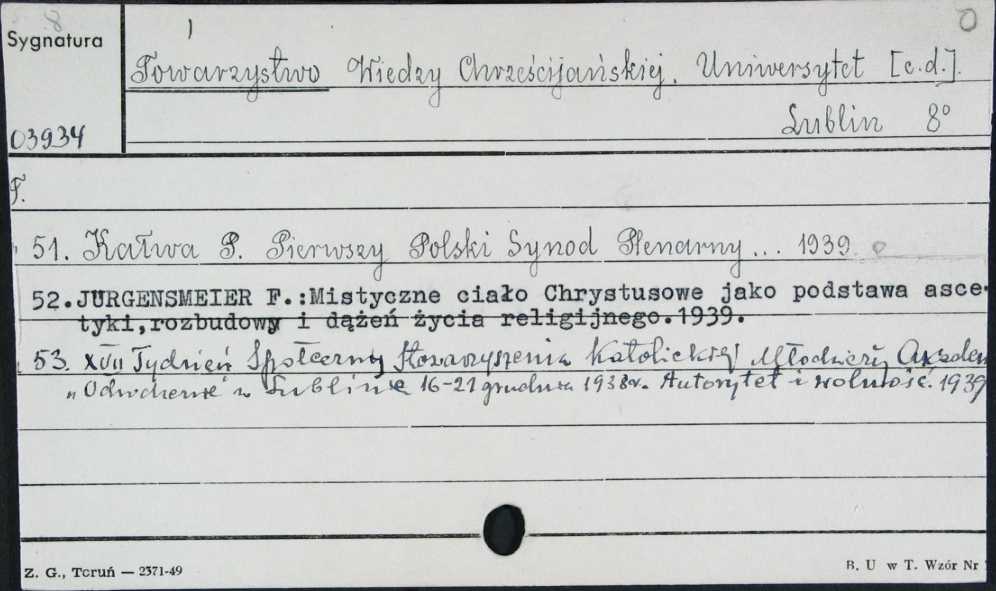 8
Sygnatura
Towarzystwo Wiedzy Chrześcijańskiej. Uniwersytet [c.d.].
Lublin 8°
03934
F.
51. Kałwa P. Pierwszy Polski Synod Plenarny... 1939.
52. JURGENSMEIER F.:Mistyczne ciało Chrystusowe jako podstawa asce-
tyki,rozbudowy i dążeń życia religijnego.1939.
53. XVII Tydzień Społeczny Stowarzyszenia Katolickiej Młodzieży Akadem
„Odrodzenie" w Lublinie 16-21 grudnia 1938 r. Autorytet i wolność. 1939
Z. G., Toruń — 2371-49
B. U w T. Wzór Nr